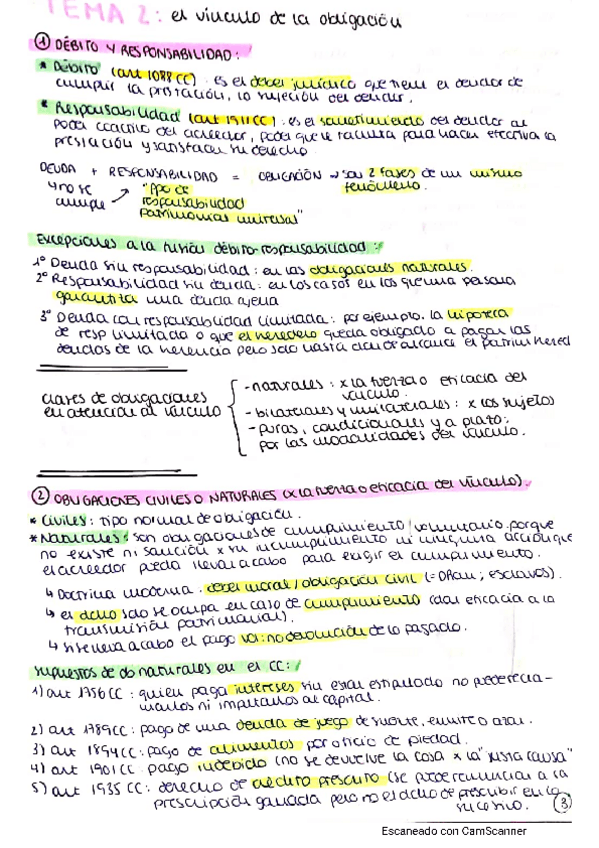 TEMA 2: el vínculo de la obligación
① DÉBITO Y RESPONSABILIDAD:
* Débito (art 1088 CC): es el deber jurídico que tiene el deudor de
cumplir la prestación, la sujeción del deudor.
* Responsabilidad (art 1911 CC): es el sometimiento del deudor al
poder coactivo del acreedor, poder que le faculta para hacer efectiva la
prestación y satisfacer su derecho
DEUDA + RESPONSABILIDAD = OBLIGACIÓN → son 2 fases de un mismo
fenómeno.
↳ no se
cumple
"tipo de
responsabilidad
patrimonial universal"
Excepciones a la fusión débito-responsabilidad:
1º Deuda sin responsabilidad: en las obligaciones naturales.
2º Responsabilidad sin deuda: en los casos en los que una persona
garantiza una deuda ajena
3º Deuda con responsabilidad limitada: por ejemplo. la hipoteca
de resp limitada o que el heredero queda obligado a pagar las
deudas de la herencia pero solo hasta donde alcance el patrim hered
clases de obligaciones
en atención al vínculo
- naturales: x la fuerza o eficacia del
vínculo.
- bilaterales y unilaterales: x los sujetos
- puras, condicionales y a plazo:
por las modalidades del vínculo.
② OBLIGACIONES CIVILES O NATURALES (x la fuerza o eficacia del vínculo).
* Civiles: tipo normal de obligación.
* Naturales: son obligaciones de cumplimiento voluntario. porque
no existe ni sanción x su incumplimiento ni ninguna acción que
el acreedor pueda llevar a cabo para exigir el cumplimiento.
↳ Doctrina moderna. deber moral / obligación civil (= DRom; esclavos).
↳ el dcho solo se ocupa en caso de cumplimiento (dar eficacia a la
transmisión patrimonial).
↳ si se lleva a cabo el pago vol: no devolución de lo pagado.
supuestos de ob naturales en el CC:
1) art 1756 CC: quien paga intereses sin estar estipulado no puede recla-
marlos ni imputarlos al capital.
2) art 1789 CC: pago de una deuda de juego de suerte, envite o azar.
3) art 1894 CC: pago de alimentos por oficio de piedad.
4) art 1901 CC: pago indebido (no se devuelve la cosa x la "justa causa"
5) art 1935 CC: derecho de crédito prescrito (se puede renunciar a la
prescripción ganada pero no el dcho de prescribir en lo
sucesivo.
③
Escaneado con CamScanner